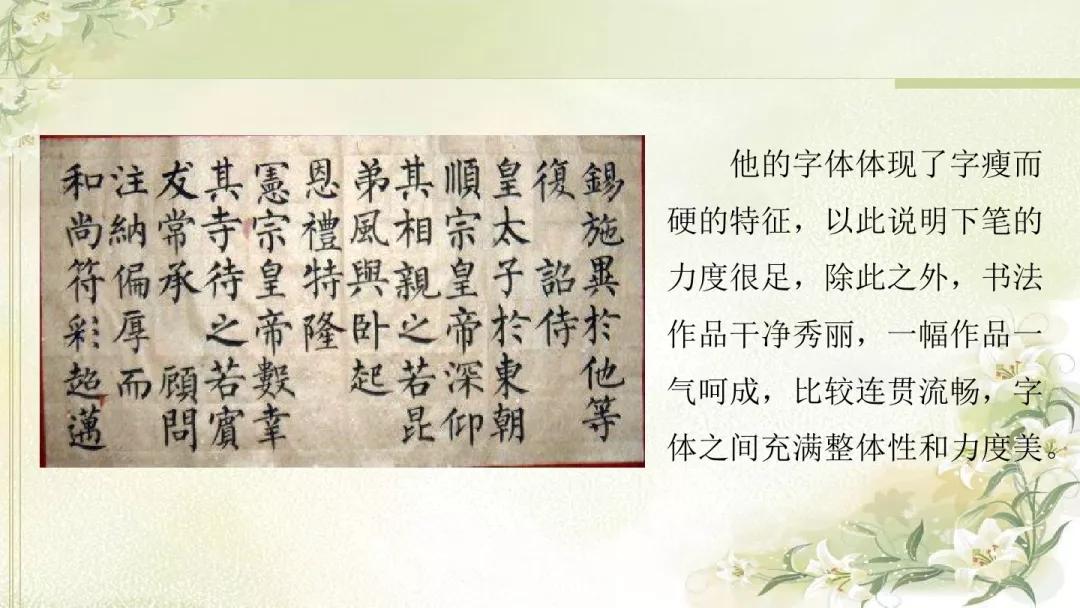 錫施異於他等
復詔侍
皇太子於東朝
順宗皇帝深仰
其相親之若昆
弟風與卧起
恩禮特隆
憲宗皇帝數幸
其寺待之若賓
友常承顧問
注納偏厚而
和尚符彩超邁
他的字体体现了字瘦而
硬的特征，以此说明下笔的
力度很足，除此之外，书法
作品干净秀丽，一幅作品一
气呵成，比较连贯流畅，字
体之间充满整体性和力度美。